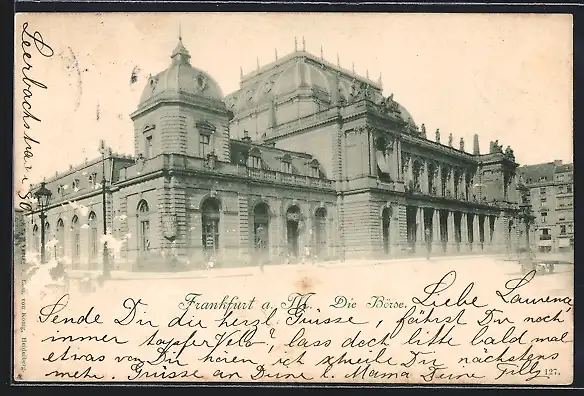 Leerbachstr. 30
Frankfurt a. M. Die Börse.
Liebe Laurena,
Sende Dir die herzl. Grüsse, fährst Du noch
immer tapfer Velo?, lass doch bitte bald mal
etwas von Dir hören ich schreibe Dir nächstens
mehr. Grüsse an Deine l. Mama Deine
127.
von König, Heidelberg.